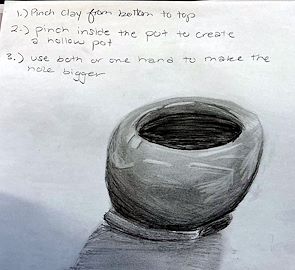 1.) Pinch clay from bottom to top
2.) pinch inside the pot to create
a hollow pot
3.) use both or one hand to make the
hole bigger